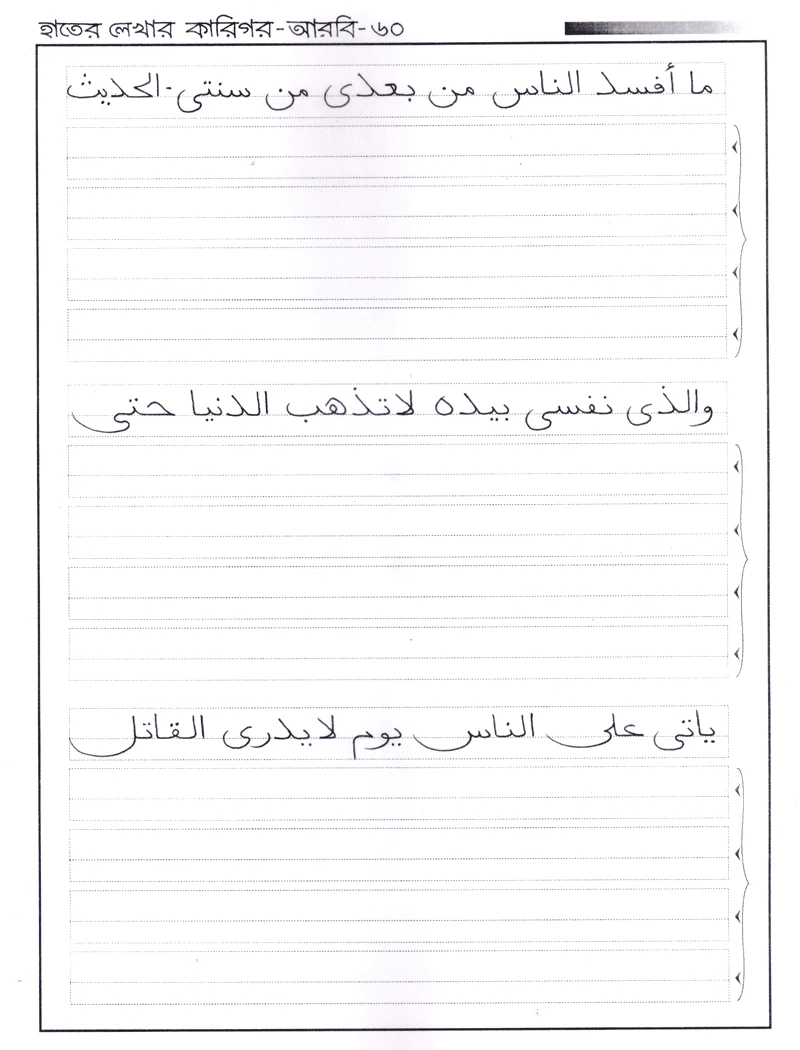 হাতের লেখার কারিগর-আরবি-৬০
ما أفسد الناس من بعدى من سنتى-الحديث
والذى نفسى بيده لاتذهب الدنيا حتى
ياتى على الناس يوم لايدرى القاتل